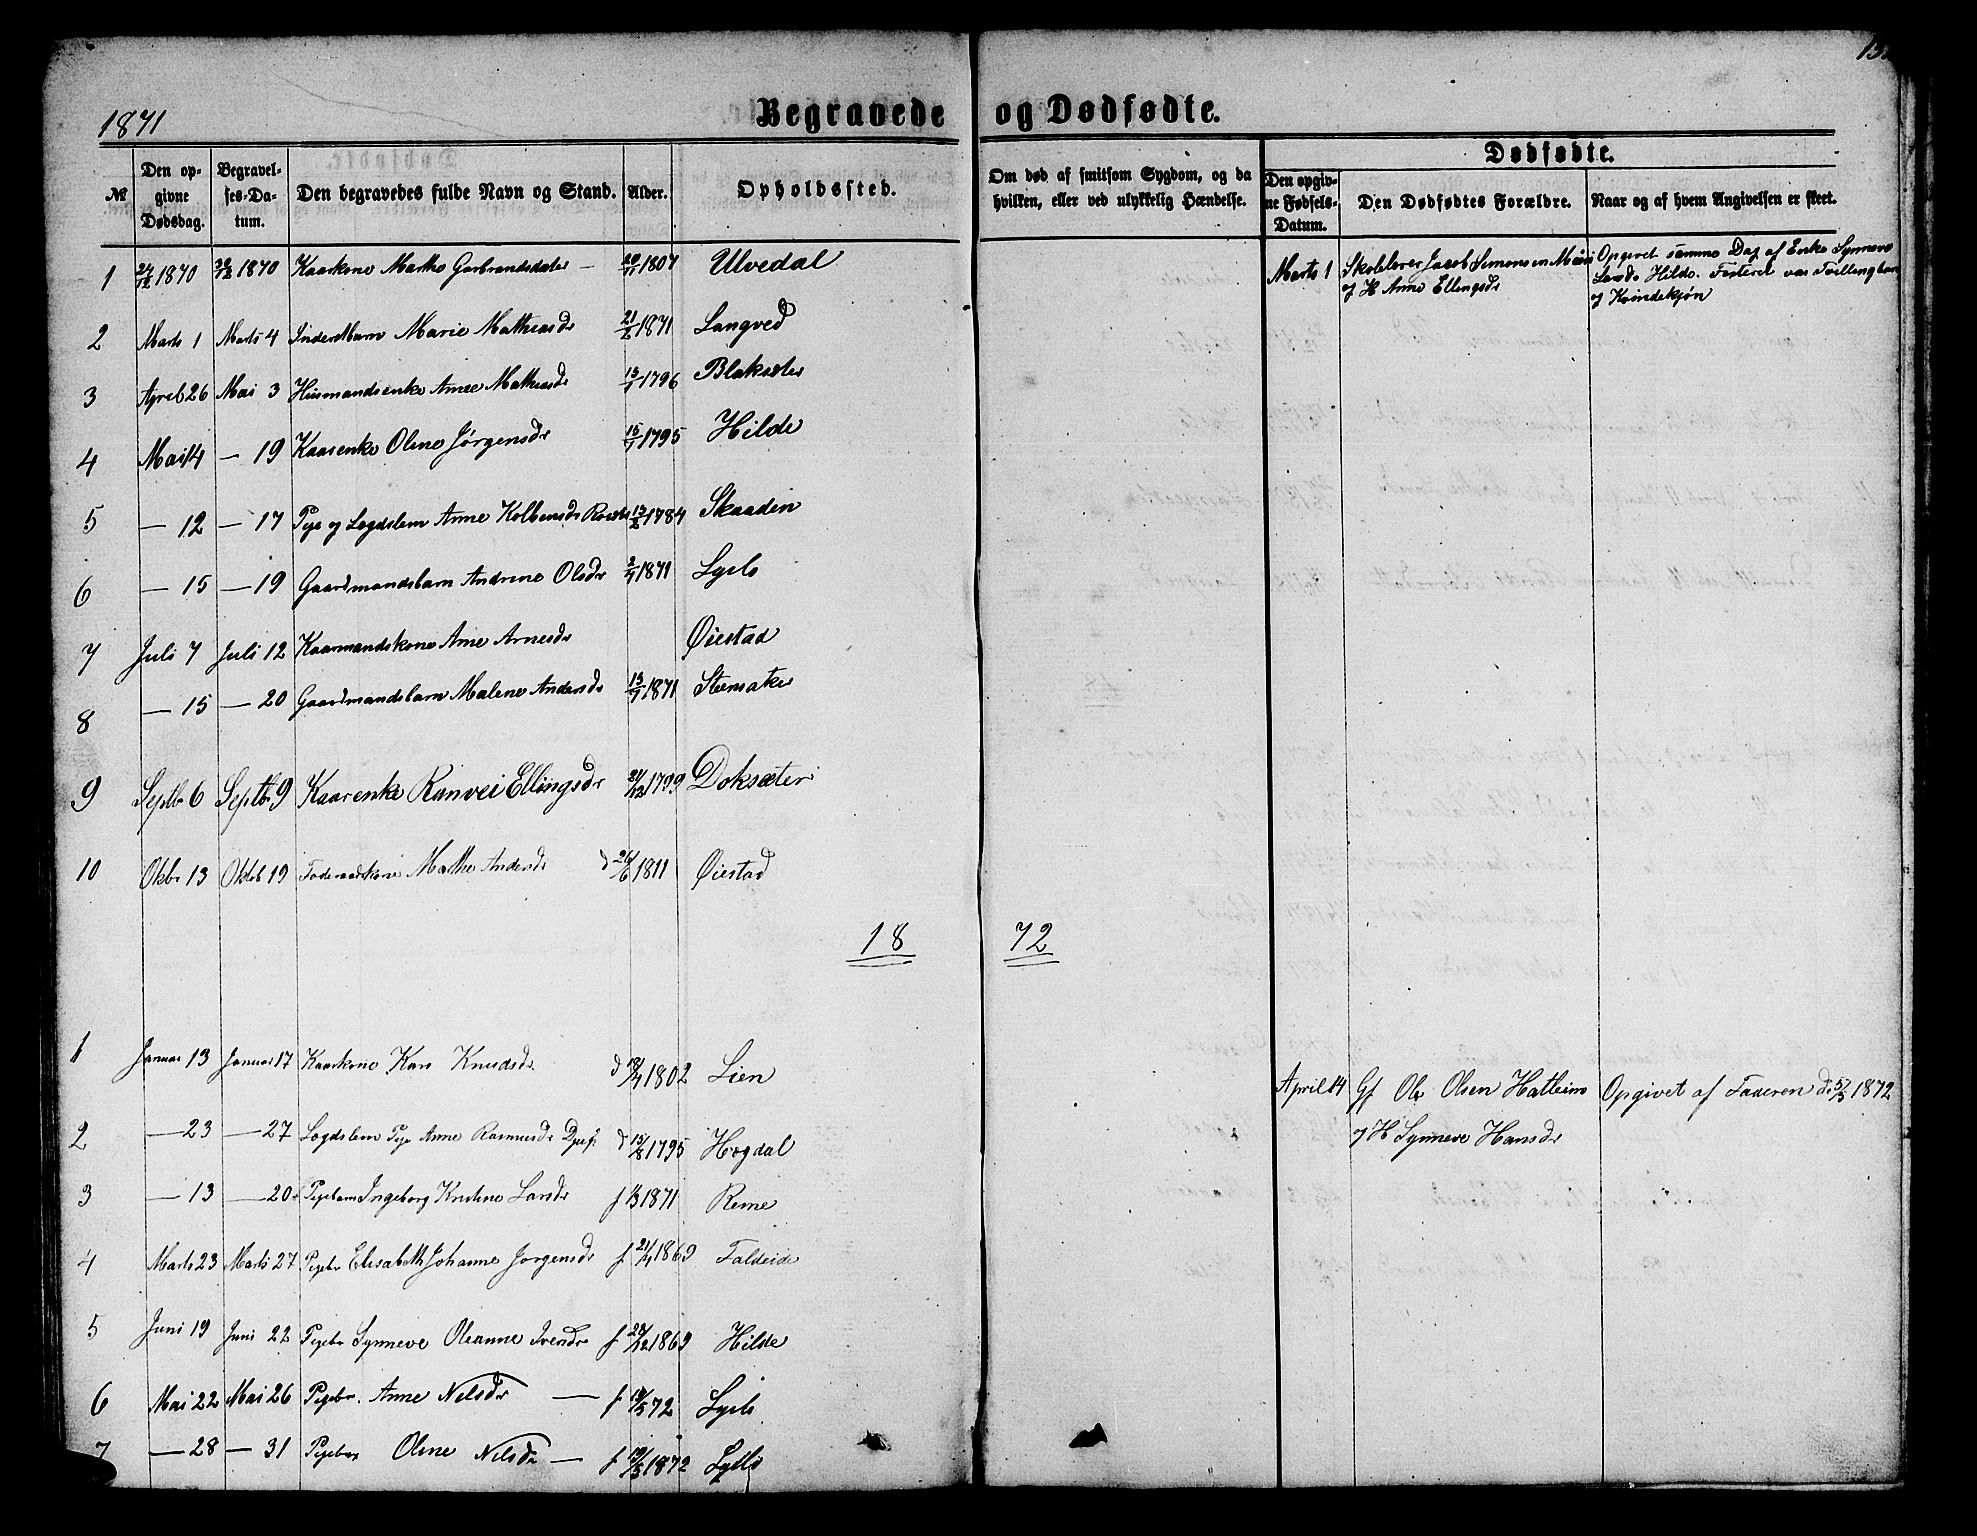 1871
Begravede og Dødfødte.
No
Den opgivne Dødsdag.
Begravelses-Datum.
Den begravedes fulde Navn og Stand.
Alder.
Opholdssted.
Om død af smitsom Sygdom, og da hvilken, eller ved ulykkelig Hændelse.
Dødfødte.
Den opgivne Fødsels-Datum.
Den Dødfødtes Forældre.
Naar og af hvem Angivelsen er skeet.
1 24/12 1870 30/12 1870 Kaarkone Marthe Garbrandsdatter 20/11 1807 Ulvedal
Marts 1 Skolelærer Jacob Simonsen
og H Anne Ellingsdr
Opgivet samme Dag af Enke Synneve
Hilde. Fosteret var
og Kvindekjøn
2 Marts 1 Marts 4 Inderstbarn Marie Mathiasdr 21/2 1871 Langved
3 April 26 Mai 3 Husmandsenke Anne Mathiasdr 1796 Blaksæter
4 Mai 14 — 19 Kaarenke Oline Jørgensdr 15/7 1795 Hilde
5 — 12 — 17 Pige og Lægdslem Anne 13/2 1784 Skaaden
6 — 15 — 19 Gaardmandsbarn Andrine Olsdr 2/4 1871
7 Juli 7 Juli 12 Kaarmandskone Anne Arnesdr Øiestad
8 — 15 — 20 Gaardmandsbarn Malene Andersdr 13/7 1871
9 Septbr 6 Septbr 9 Kaarenke Ranvei Ellingsdr 21/12 1799 Doksæter
10 Oktbr 13 Oktob 19 Marthe Andersdr d 26/6 1811 Øiestad
1872
1 Januar 13 Januar 17 Kaarkone Kari Knudsdr 1802 Lien
April 14 Gf Ole Olsen
og H Synneve Hansdr
Opgivet af Faderen d 5/5 1872
2 — 23 — 27 Lægdslem Pige Anne Rasmusdr 13/8 1795 Hogdal
3 — 13 — 20 Pigebarn Ingeborg Kristine Larsdr f 1871
4 Marts 23 Marts 27 Pigebr Elisabeth Johanne Jørgensdr f 21/4 1869 Faldeide
5 Juni 19 Juni 22 Pigebr Synneve Oleanne Iversdr f 28/12 1869 Hilde
6 Mai 22 Mai 26 Pigebr. Anne Nilsdr — f 19/5 72
7 — 28 — 31 Pigebr Oline Nilsdr — f 19/5 1872